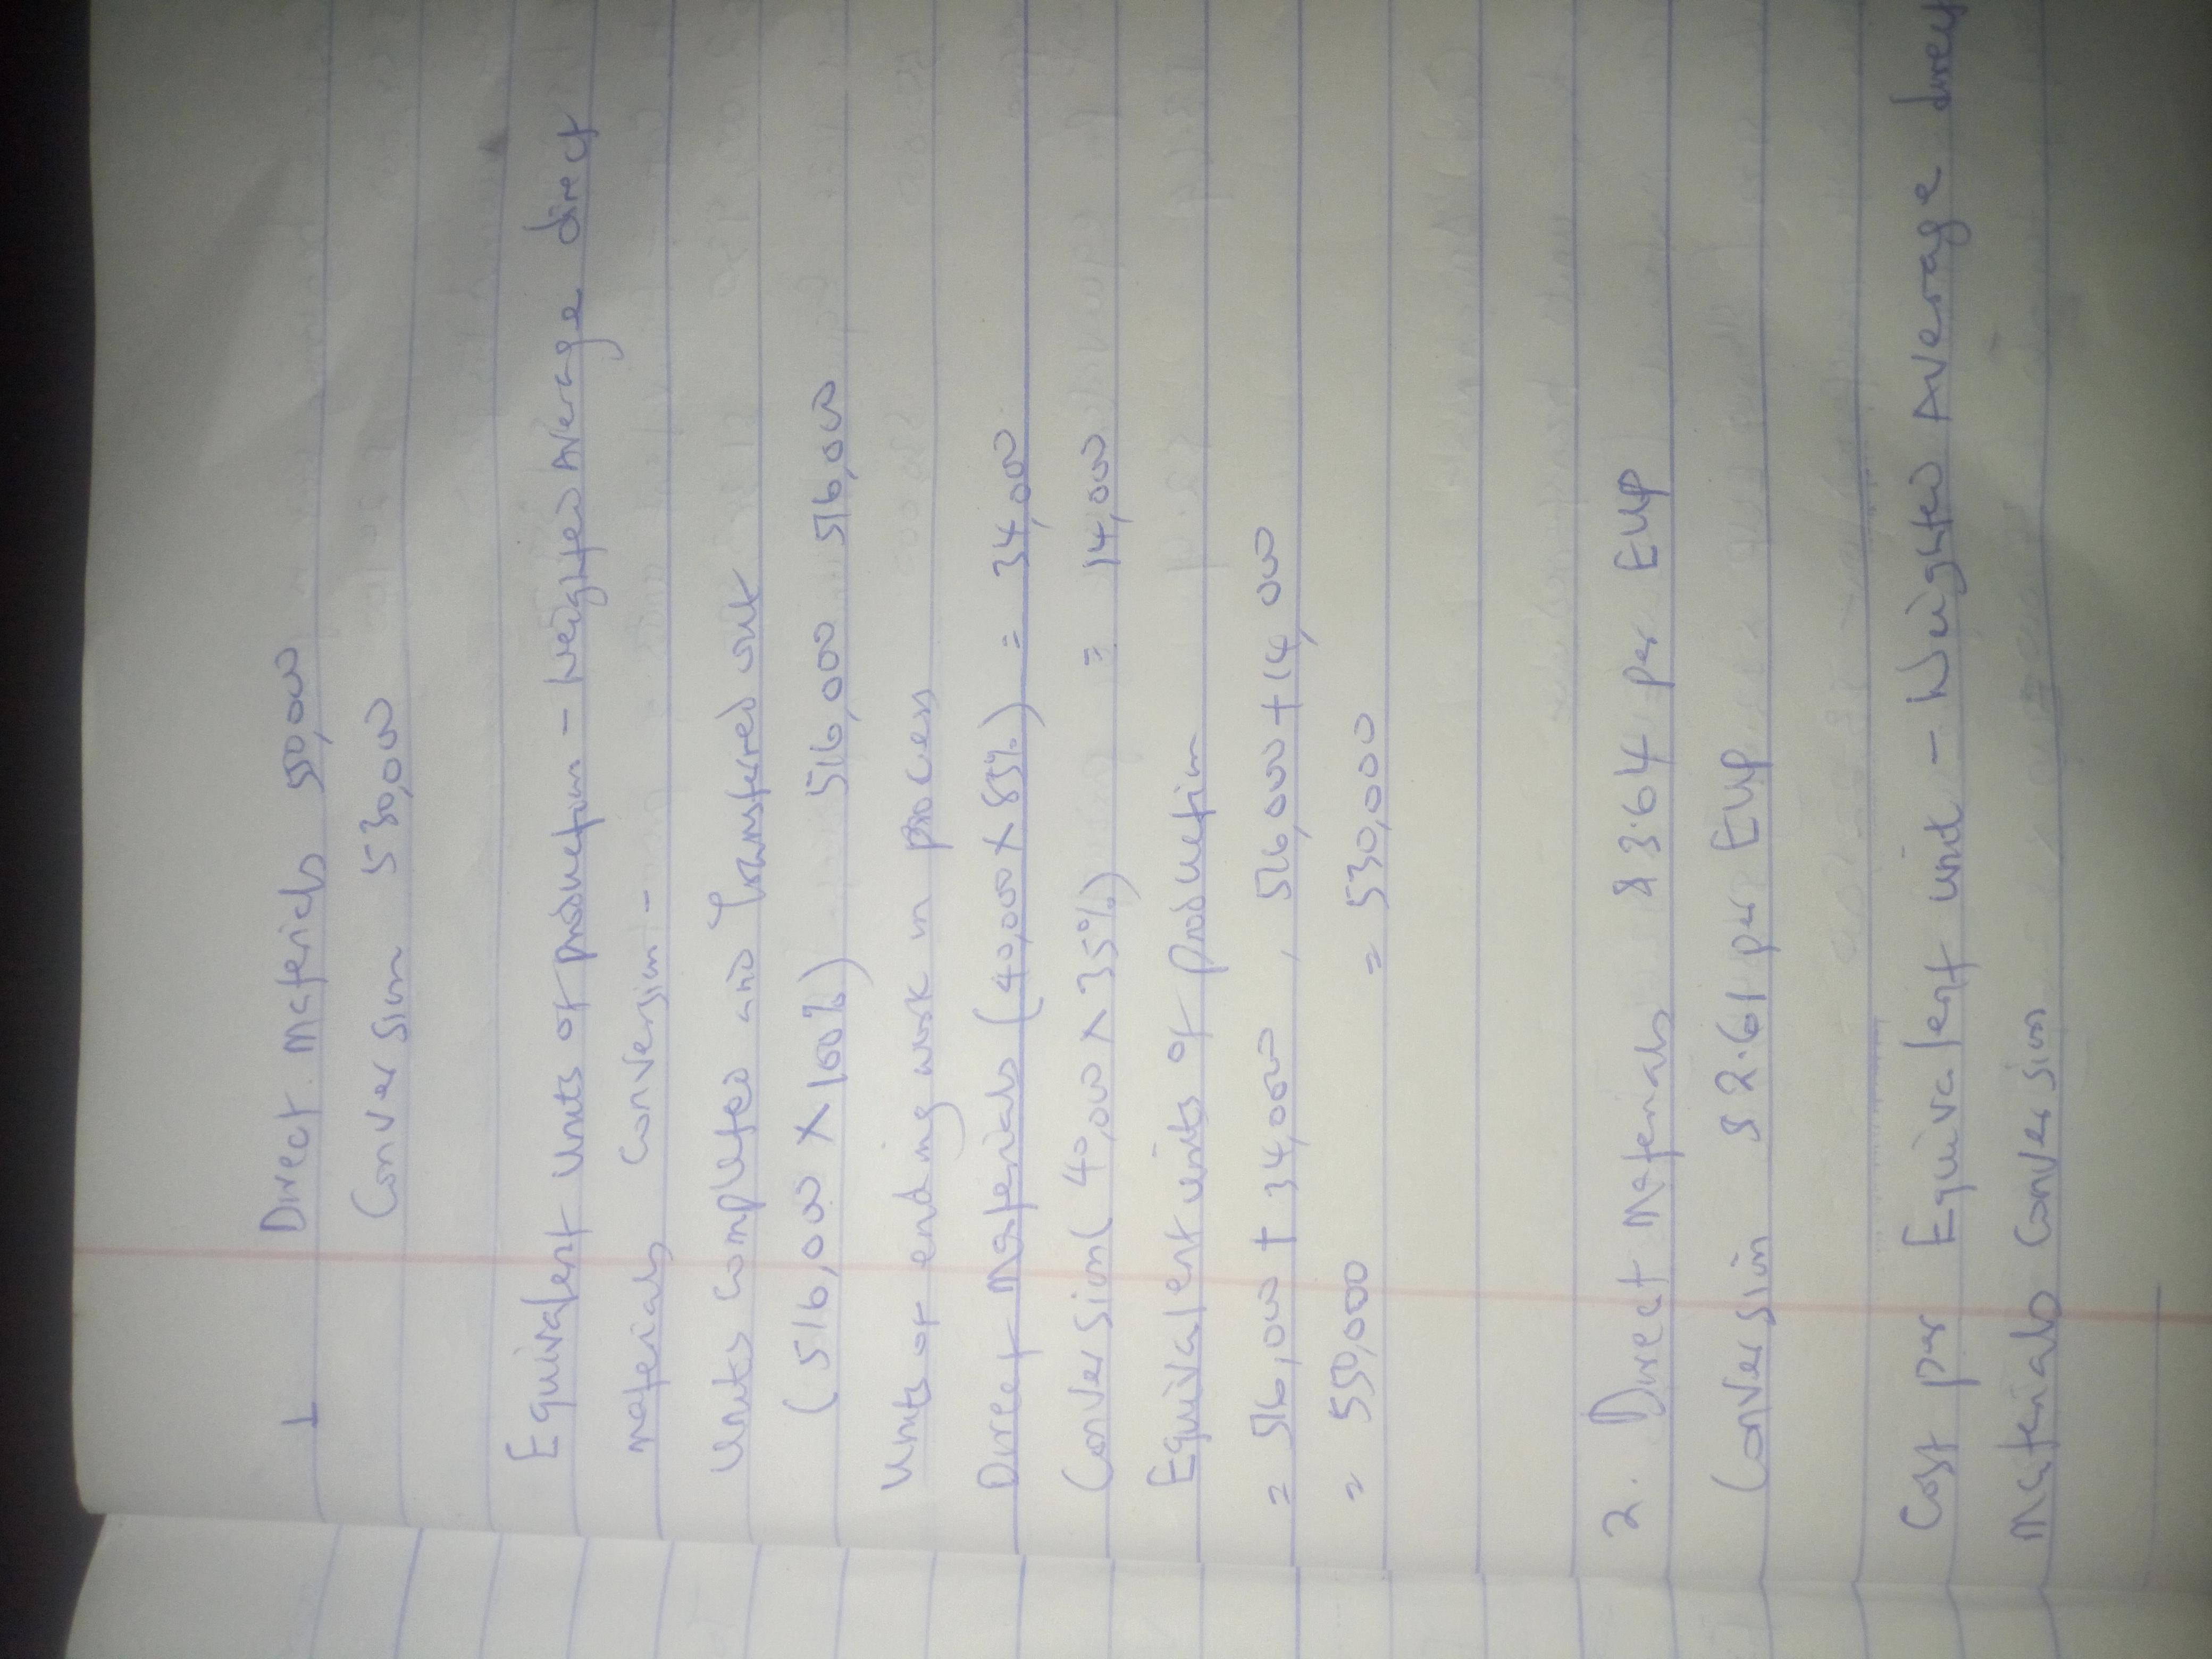 1 Direct materials 550,000
Conversion 530,000
Equivalent units of production - Weighted Average direct
materials conversion -
Units completed and Transfered out
(516,000 × 100%) 516,000 516,000
Units of ending work in process
Direct Materials (40,000 × 85%) = 34,000
Conversion (40,000 × 35%) = 14,000
Equivalent units of production
= 516,000 + 34,000, 516,000 + 14,000
= 550,000 = 530,000
2. Direct Materials $3.64 per EUP
Conversion $2.61 per EUP
Cost per Equivalent unit - Weighted Average direct
Materials Conversion